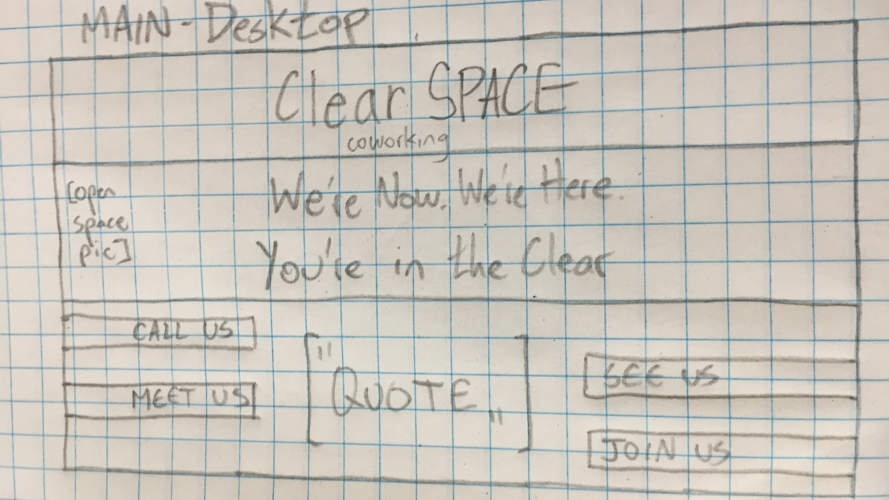 MAIN - Desktop
Clear SPACE
coworking
[open
space
pic]
We're Now. We're Here.
You're in the Clear
CALL US
MEET US
["QUOTE"]
SEE US
JOIN US